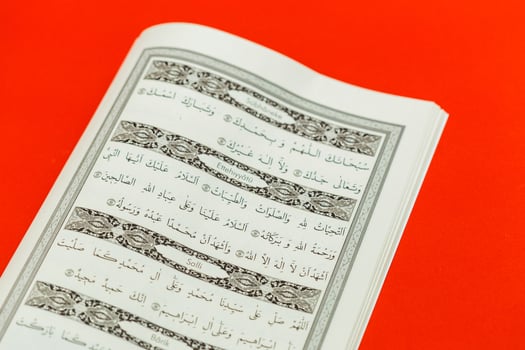 Sübhâneke
سُبْحَانَكَ اللّٰهُمَّ وَ بِحَمْدِكَ وَتَبَارَكَ اسْمُكَ
وَتَعَالٰى جَدُّكَ وَلَا اِلٰهَ غَيْرُكَ
Ettehıyyâtü
اَلتَّحِيَّاتُ لِلّٰهِ وَالصَّلَوَاتُ وَالطَّيِّبَاتُ اَلسَّلَامُ عَلَيْكَ اَيُّهَا النَّبِىُّ
وَرَحْمَةُ اللّٰهِ وَ بَرَكَاتُهُ اَلسَّلَامُ عَلَيْنَا وَعَلٰى عِبَادِ اللّٰهِ الصَّالِحِينَ
اَشْهَدُ اَنْ لَا اِلٰهَ اِلَّا اللّٰهُ وَاَشْهَدُ اَنَّ مُحَمَّدًا عَبْدُهُ وَرَسُولُهُ
Salli
اَللّٰهُمَّ صَلِّ عَلٰى سَيِّدِنَا مُحَمَّدٍ وَعَلٰى اٰلِ مُحَمَّدٍ كَمَا صَلَّيْتَ
اِبْرٰهِيمَ وَعَلٰى اٰلِ اِبْرٰهِيمَ اِنَّكَ حَمِيدٌ مَجِيدٌ
Bârik
كَمَا بَارَكْتَ